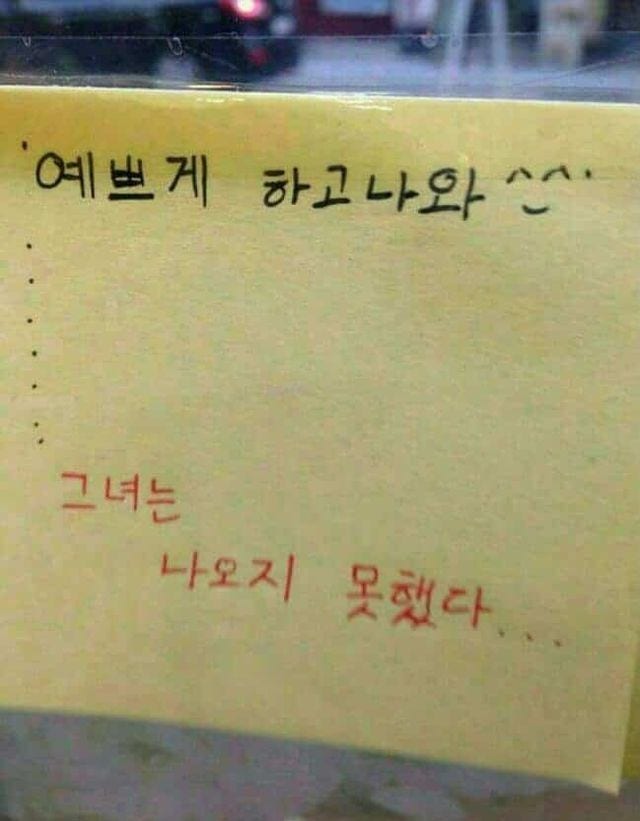 '예쁘게 하고나와 ^_^'
.
.
.
.
.
:
그녀는
나오지 못했다...